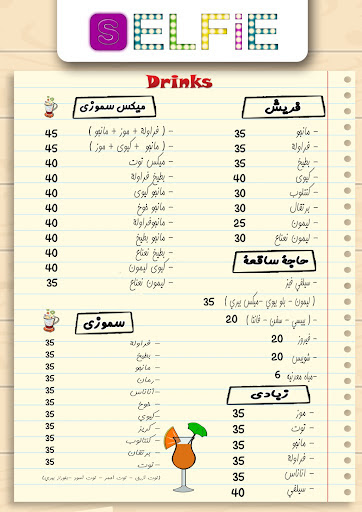 SELFiE
Drinks
فريش
- مانجو 35
- فراولة 35
- بطيخ 35
- كيوى 40
- كنتلوب 30
- برتقال 30
- ليمون 25
- ليمون نعناع 30
حاجة ساقعة
- سيلفي فيز
( ليمون - بلو بيري - ميكس بيري ) 35
( بيبسي - سفن - فانتا ) 20
- فيروز 20
- شويبس 20
- مياه معدنيه 6
زبادى
- موز 35
- توت 35
- مانجو 35
- فراولة 35
- اناناس 35
- سيلفي 40
ميكس سموزى
- ( فراولة + موز + مانجو ) 45
- ( مانجو + كيوى + موز ) 45
- ميكس توت 40
- بطيخ فراولة 40
- مانجو كيوى 40
- مانجو خوخ 40
- مانجو فراولة 40
- مانجو بطيخ 40
- مانجو بطيخ 40
- كيوى ليمون 40
- ليمون نعناع 35
سموزى
- فراولة 35
- بطيخ 35
- مانجو 35
- رمان 35
- اناناس 35
- خوخ 35
- كيوي 35
- كريز 35
- كنتالوب 35
- برتقان 35
- توت 35
(توت ازرق - توت احمر - توت اسود - بلوبيري)